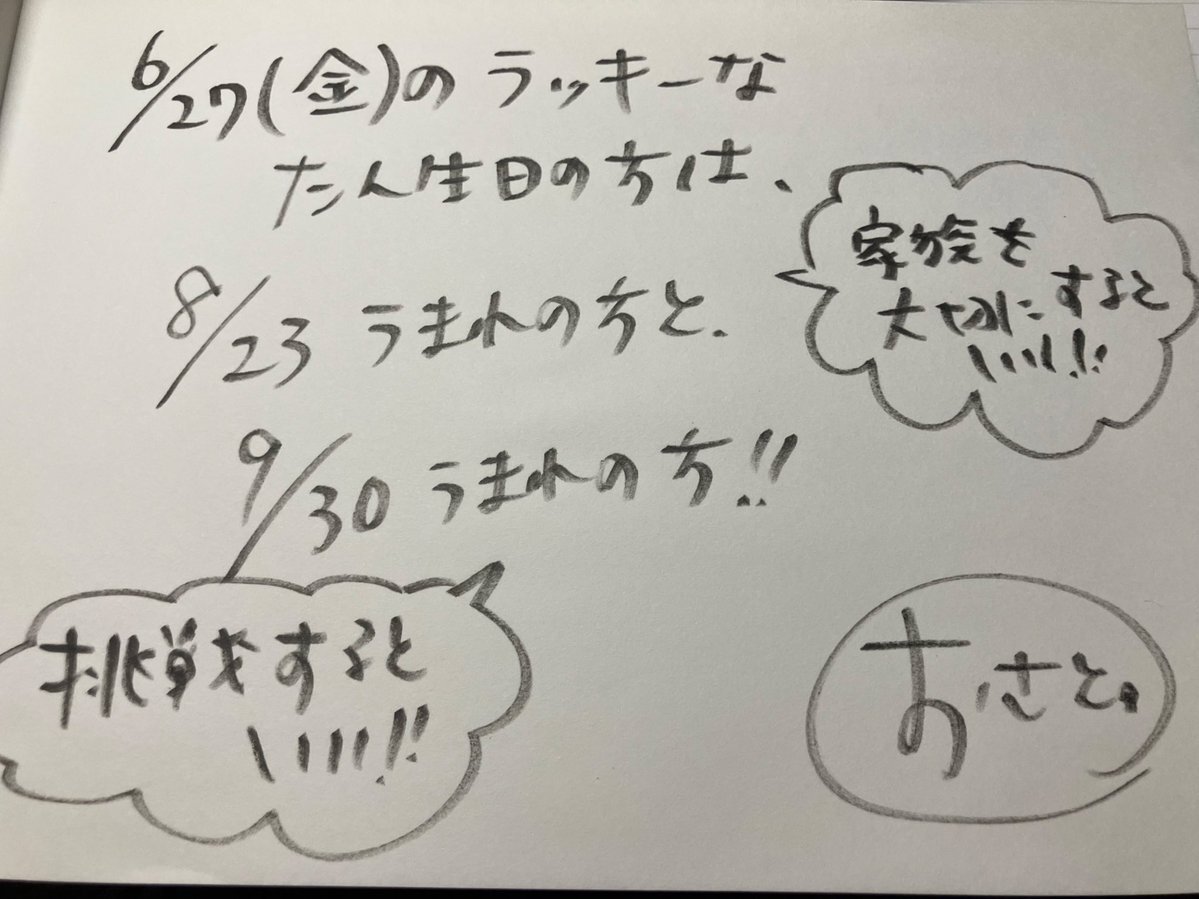 6/27(金)のラッキーな
たん生日の方は、
家族を
大切にすると
いい!!
8/23うまれの方と、
9/30うまれの方!!
挑戦をすると
いい!!
おさと。